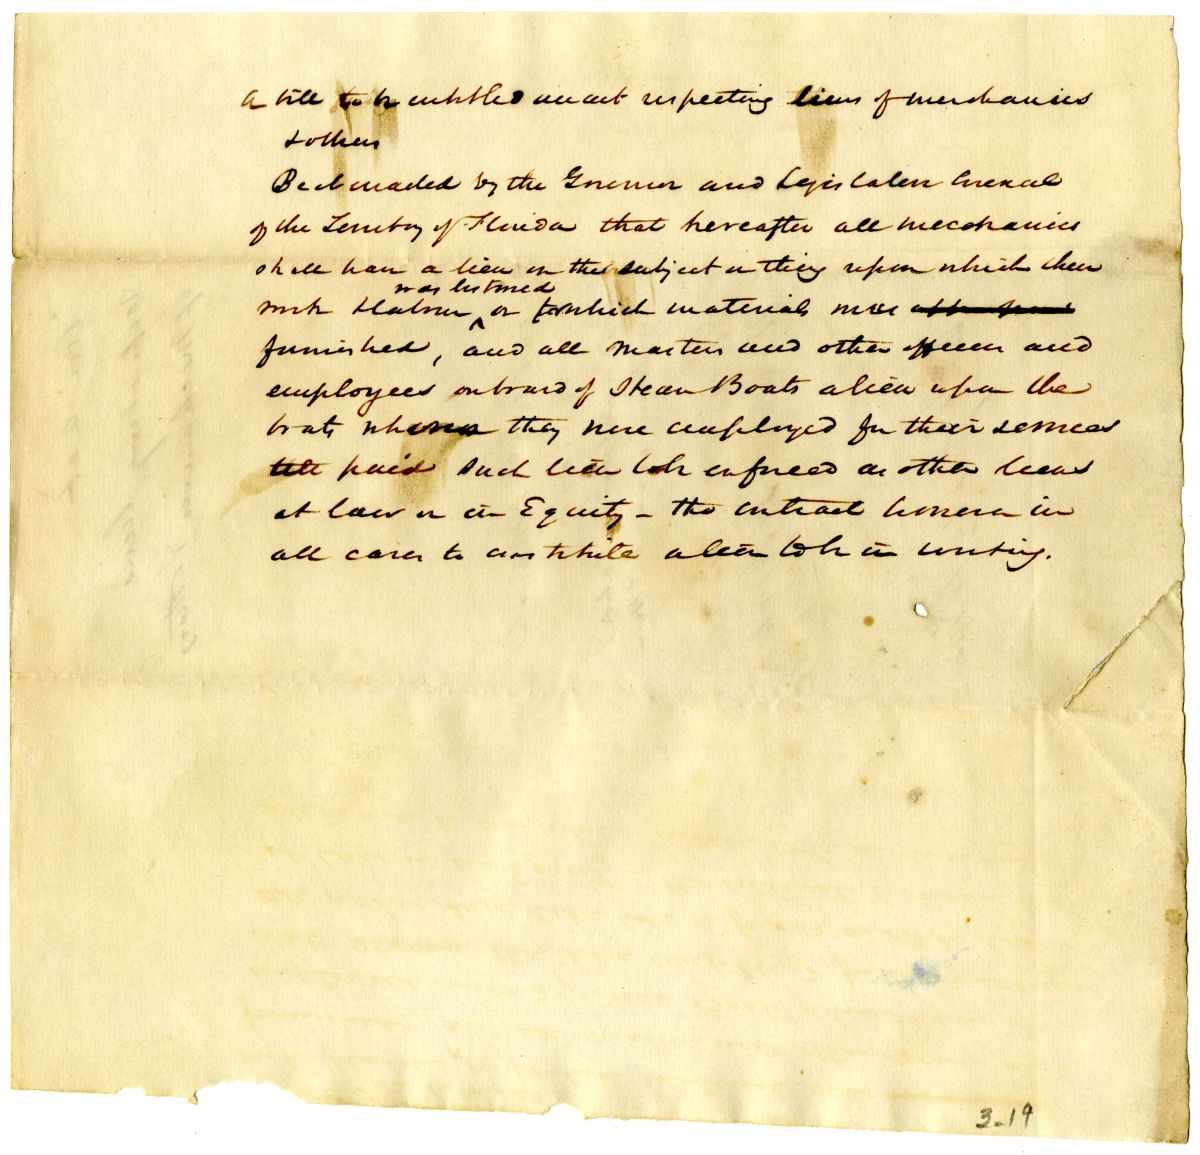 A bill to be entitled an act respecting liens of mechanics
& others
Be it enacted by the Governor and Legislative Council
of the Territory of Florida that hereafter all mechanics
shall have a lien on the subject or thing upon which their
was bestowed
work & labour ^ or for which materials were
furnished, and all masters and other officers and
employees on board of Steam Boats a lien upon the
boats whereon they were employed for their services
till paid such lien to be enforced as other liens
at law or in Equity – the contract however in
all cases to constitute a lien to be in writing.
3-19